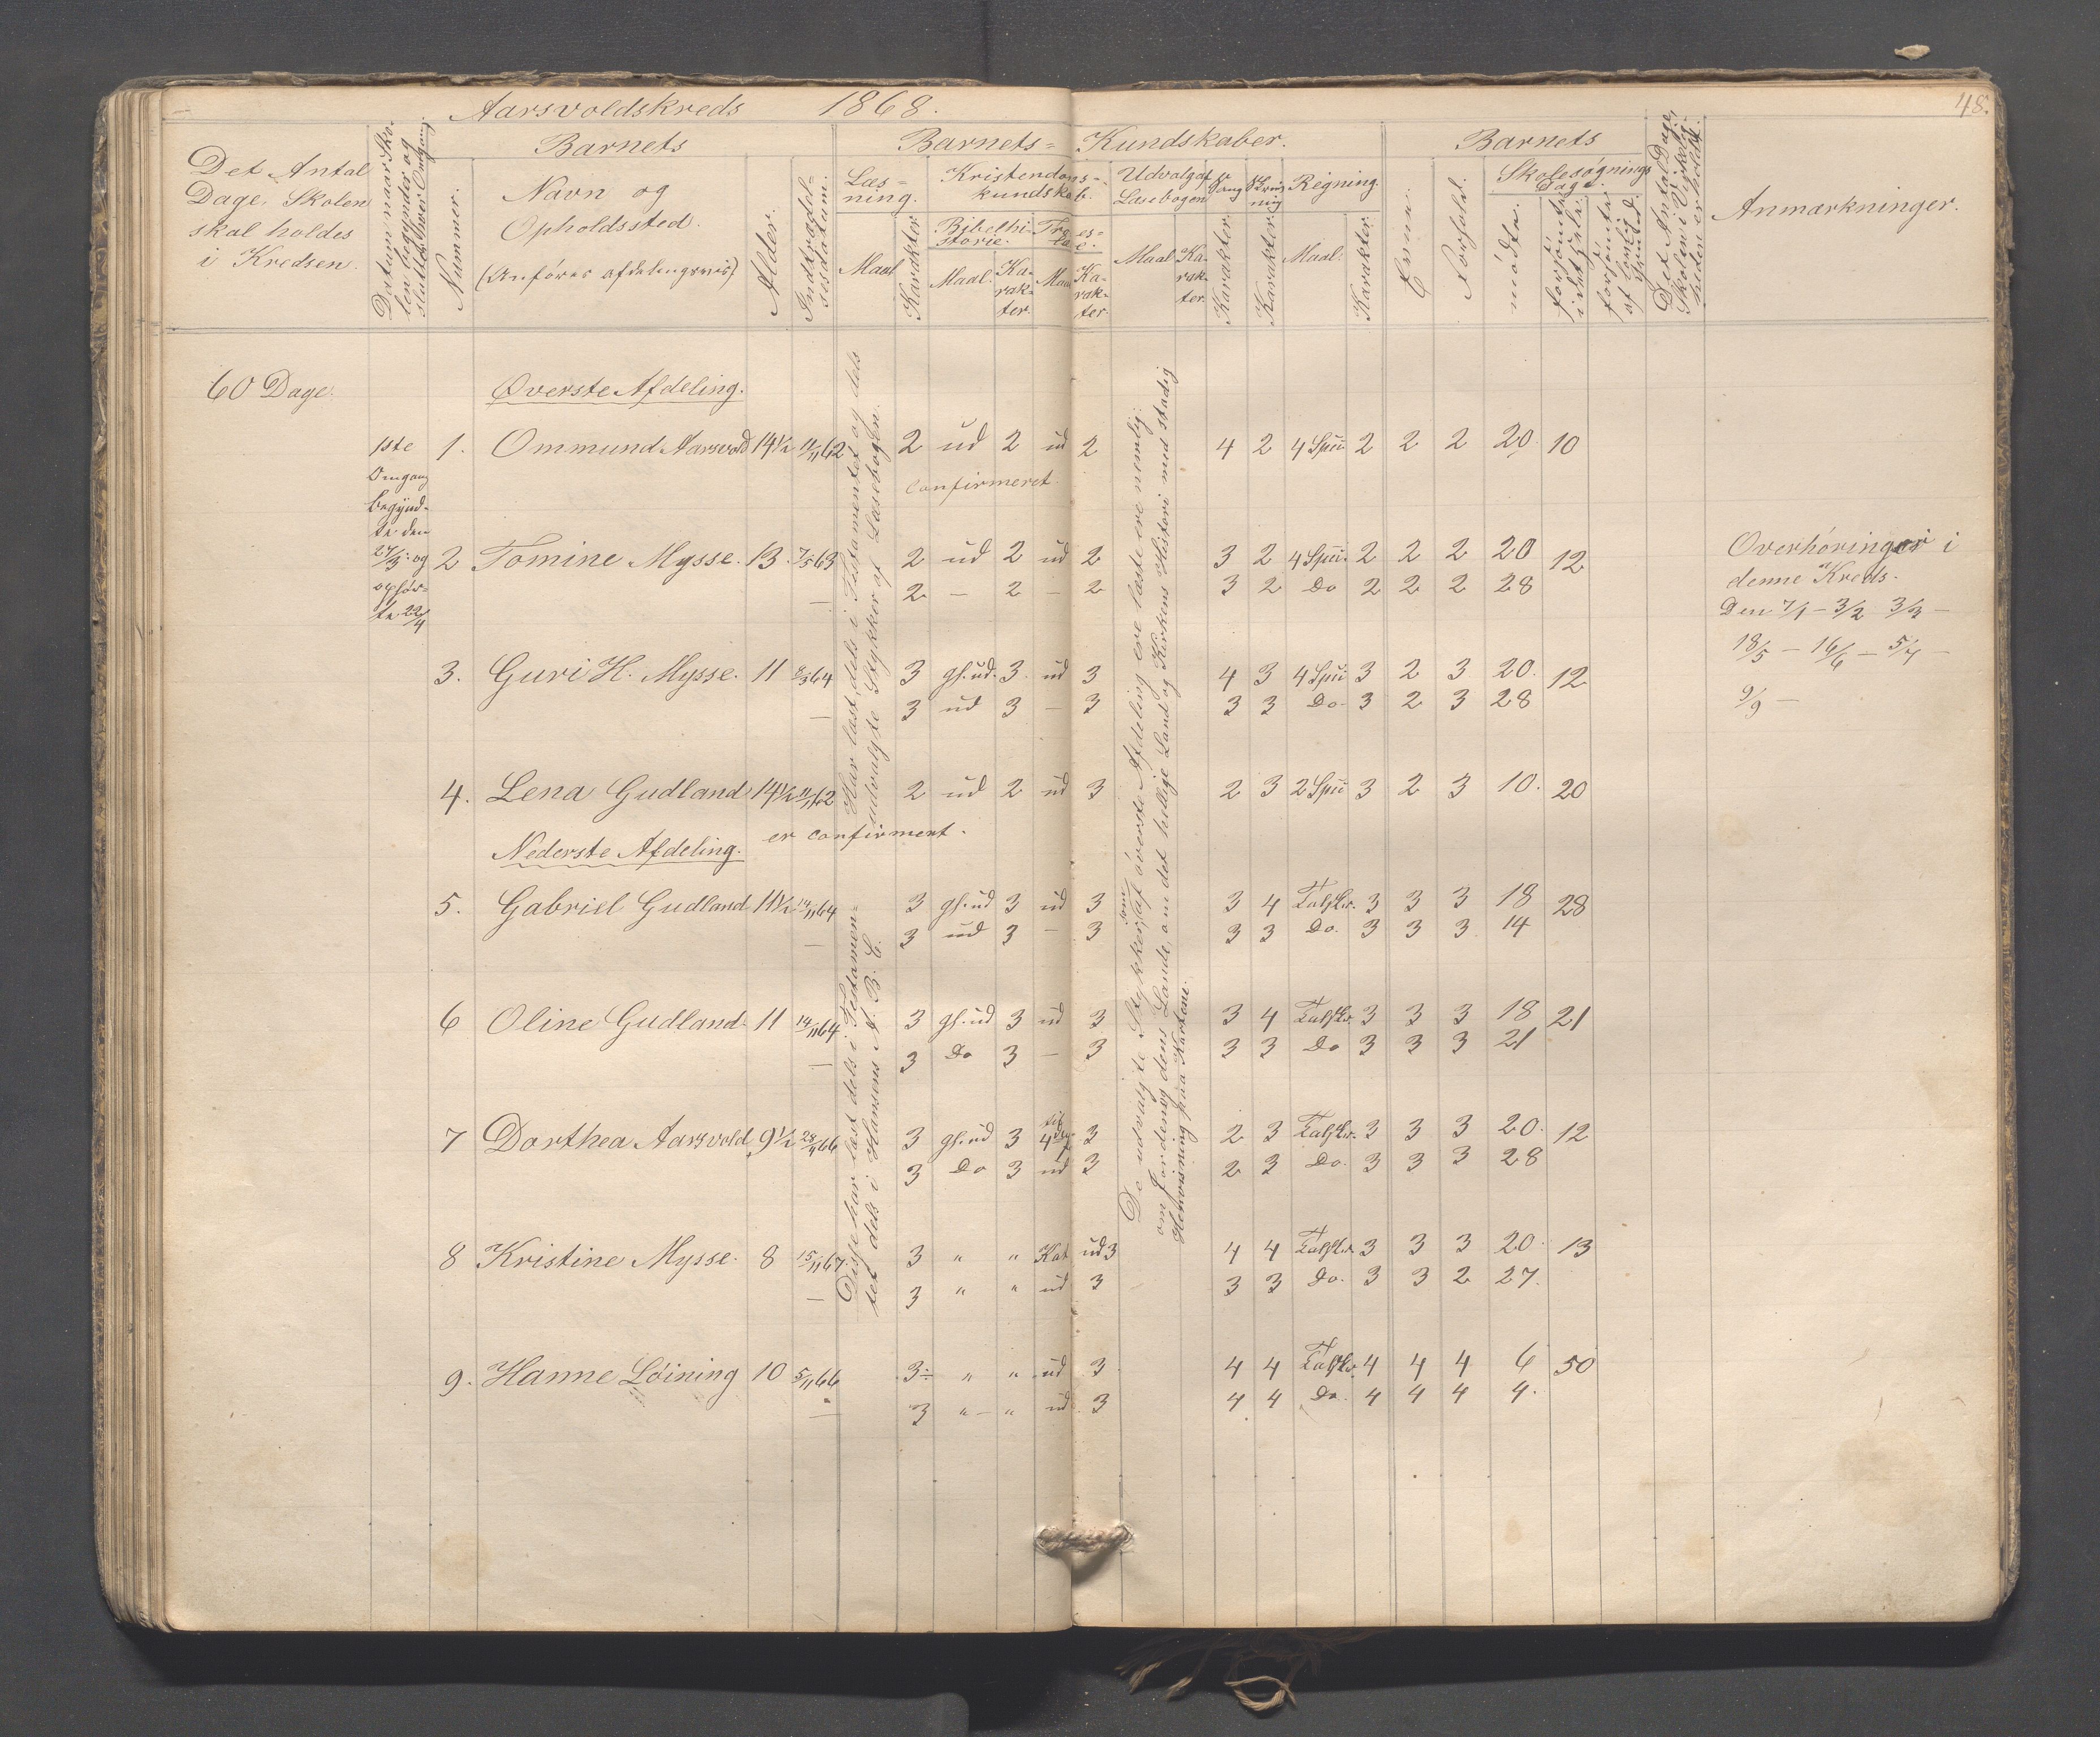 Aarsvoldskreds 1868.
48.
Det Antal Dage, Skolen skal holdes i Kredsen.
Datum naar Skolen begynder og slutter hver Omgang.
Nummer.
Barnets
Navn og Opholdssted.
(Anføres afdelingsvis)
Alder.
Indtrædelsesdatum.
Barnets Kundskaber.
Læsning.
Maal
Karakter
Kristendomskundskab.
Bibelhistorie.
Maal.
Karakter.
Troeslære.
Maal
Karakter.
Udvalg af Læsebogen
Maal
Karakter.
Sang
Karakter
Skrivning
Karakter
Regning.
Maal.
Karakter.
Barnets
Evner.
Forhold.
Skolesøgnings Dage.
mødte.
forsømte i det Hele.
forsømte af lovlig Grund.
Det Antal Dage, Skolen i Virkeligheden er holdt.
Anmærkninger.
60 Dage.
Øverste Afdeling.
1ste
Omgang
begynd-
te den
24/3. og
ophør-
te 22/4
1. Ommund Aarsvold 14½ 11/11 62 2 ud 2 ud 2 4 2 4 Spii 2 2 2 20 10
confirmeret
2 Tomine Mysse. 13. 7/5 63 2 ud 2 ud 2 3 2 4 Spii. 2 2 2 20 12
— 2 — 2 — 2 3 2 Do 2 2 2 28
3. Guri H. Mysse. 11 8/5 64 3 gl. ud. 3. ud 3 4 3 4 Spii 3 2 3 20. 12
— 3 ud 3 — 3 3 3 Do 3 2 3 28
4. Lena Gudland 14½ 11/11 62 2 ud 2 ud 3 2 3 2 Spii 3 2 3 10. 20
er confirment.
Nederste Afdeling.
5. Gabriel Gudland 11½ 14/11 64 3 gl. ud 3 ud 3 3 4 3 3 3 18 28
— 3 ud 3 — 3 3 3 Do. 3 3 3 14
6 Oline Gudland. 11 14/11 64 3 gl. ud 3 ud 3 3 4 3 3 3 18 21
— 3 Do 3 — 3 3 3 Do 3 3 3 21
7 Dorthea Aarsvold 9½ 66 3 gl. ud 3 3 2 3 3 3 3 20. 12
3 Do 3 ud 3 2 3 Do. 3 3 3 28
8 Kristine Mysse. 8 15/11 67 3 " " Kat ud 3 4 4 3 3 3 20 13
— 3 " " ud 3 3 3 Do. 3 3 2 27.
9. Hanne Løining 10 5/11 66 3÷ " " ud 3 4 4 4 4 4 6 50
— 3 " — " ud 3 4 4 Do. 4 4 4 4.
Har læst dels i Testamentet og dels
udvalgte Stykker af Læsebogen.
Disse har læst dels i Testamen-
tet dels i Hansens A. B. C.
De udvalgte Stykker, som af øverste Afdeling ere læste ere nemlig:
om Jorden og dens Lande, om det hellige Land og Kirkens Histori med stadig
Henvisning paa Kartene.
Overhøringer i
denne Kreds.
Den 7/1 — 3/2 3/3 —
18/5 — 16/6 — 5/7 —
9/9 —